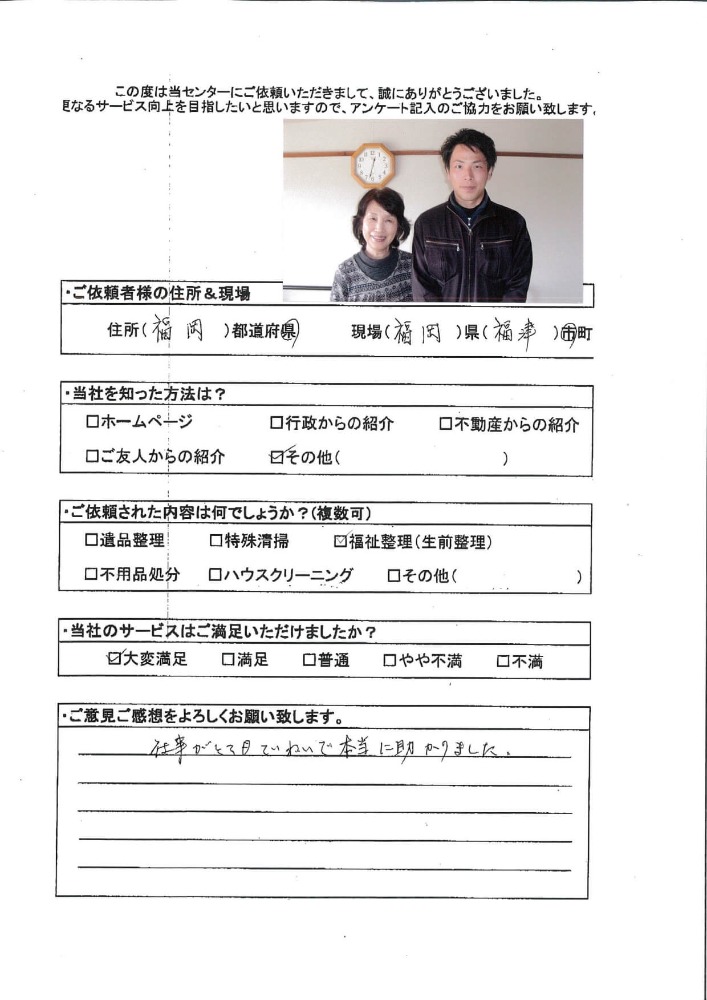 この度は当センターにご依頼いただきまして、誠にありがとうございました。
更なるサービス向上を目指したいと思いますので、アンケート記入のご協力をお願い致します。
・ご依頼者様の住所＆現場
住所(福岡)都道府県 現場(福岡)県(福津)市町
・当社を知った方法は？
□ホームページ □行政からの紹介 □不動産からの紹介
□ご友人からの紹介 ☑その他( )
・ご依頼された内容は何でしょうか？(複数可)
□遺品整理 □特殊清掃 ☑福祉整理(生前整理)
□不用品処分 □ハウスクリーニング □その他( )
・当社のサービスはご満足いただけましたか？
☑大変満足 □満足 □普通 □やや不満 □不満
・ご意見ご感想をよろしくお願い致します。
仕事がとても ていねいで本当に助かりました。